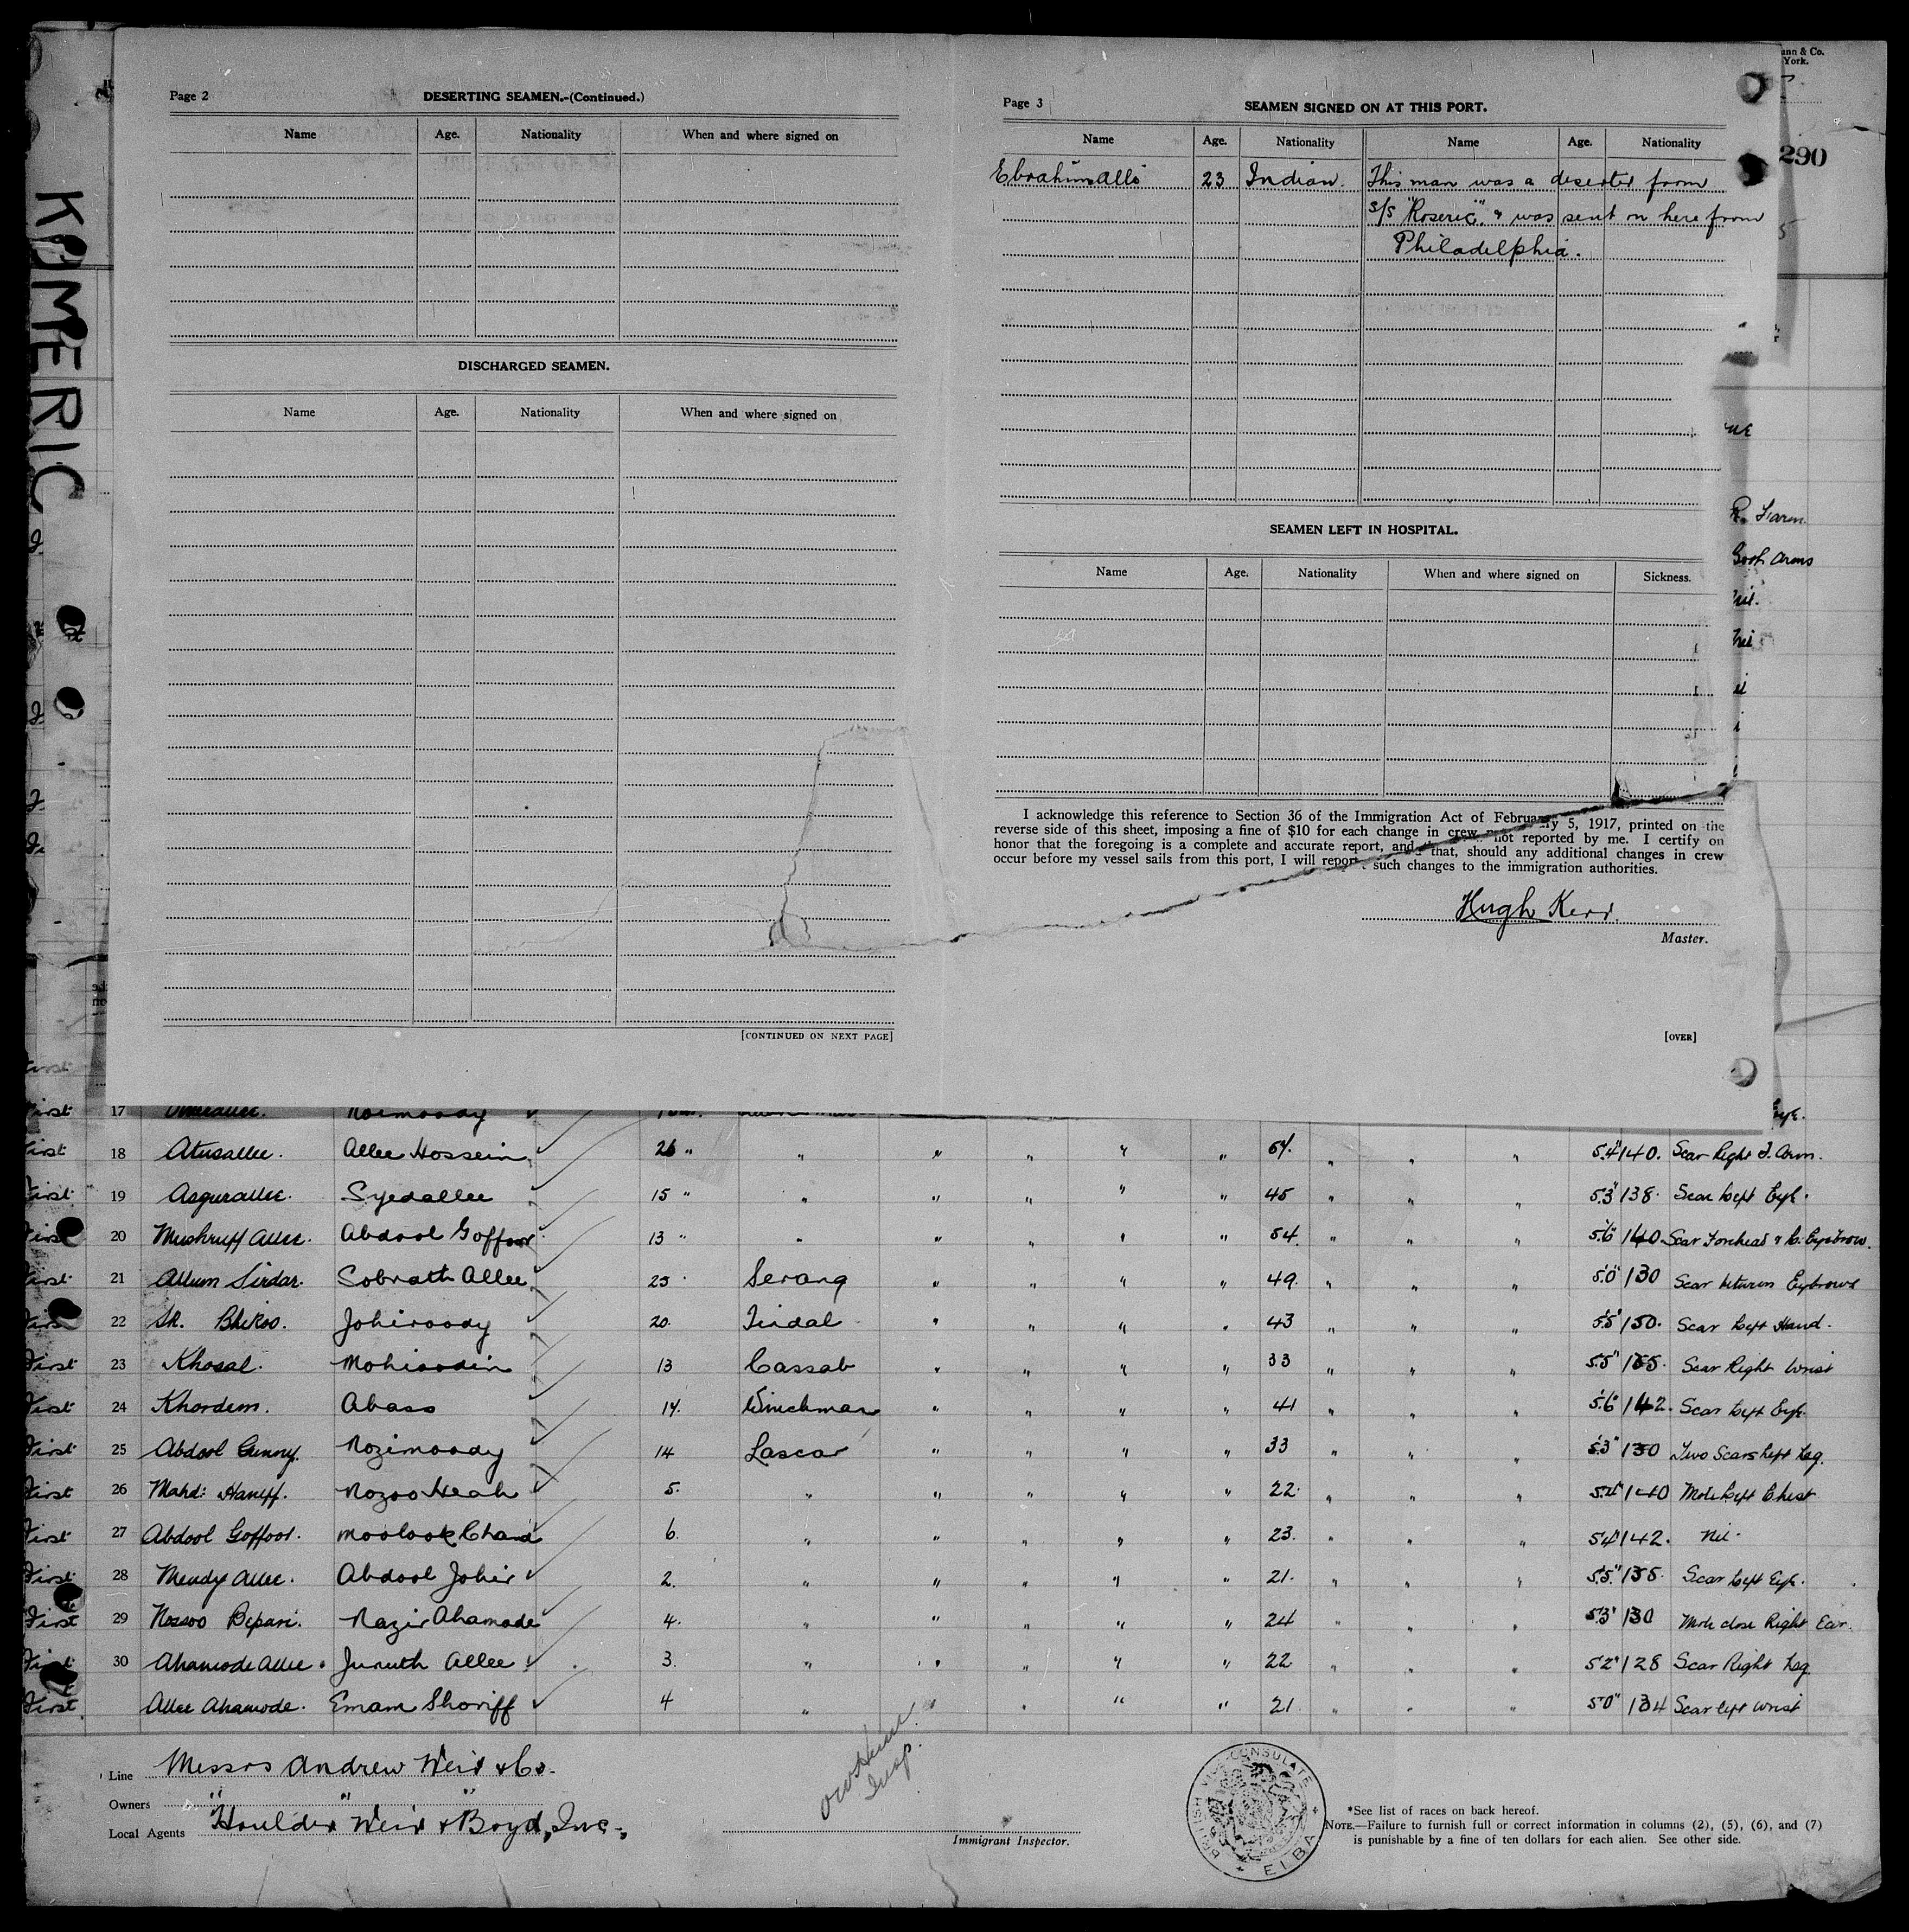 KOMERIC
Page 2
DESERTING SEAMEN.-(Continued.)
Name Age. Nationality When and where signed on
DISCHARGED SEAMEN.
Name Age. Nationality When and where signed on
[CONTINUED ON NEXT PAGE]
Page 3
SEAMEN SIGNED ON AT THIS PORT.
Name Age. Nationality Name Age. Nationality
Ebrahim alli 23 Indian. This man was a deserter from
s/s "Roseric" & was sent on here from
Philadelphia.
SEAMEN LEFT IN HOSPITAL.
Name Age. Nationality When and where signed on Sickness.
I acknowledge this reference to Section 36 of the Immigration Act of February 5, 1917, printed on the
reverse side of this sheet, imposing a fine of $10 for each change in crew not reported by me. I certify on
honor that the foregoing is a complete and accurate report, and that, should any additional changes in crew
occur before my vessel sails from this port, I will report such changes to the immigration authorities.
Hugh Kerr.
Master.
[OVER]
ann & Co.
York.
290
Nil.
Nil
17
First 18 Atusallee. Allee Hossein 26 " " " " " " 54. " " " 5'.4" 140. Scar Right F. Arm.
First 19 Asgurallee. Syedallee 15 " " " " " " 45 " " " 5'.3" 138. Scar Left Eye.
First 20 Mushruff Allee. Abdool Goffoor 13 " " " " " " 54. " " " 5'.6" 140 Scar Forehead & L. Eyebrow.
First 21 Allum Sirdar. Sobrath Allee 25 Serang " " " " 49. " " " 5'.0" 130 Scar between Eyebrows
First 22 Sk. Bhikoo. Johiroody 20. Tindal " " " " 43 " " " 5'.5" 150. Scar Left Hand.
First 23 Khosal. Mohioodin 13 Cassab " " " " 33 " " " 5'.5" 155. Scar Right Wrist
First 24 Khordem. Abass 14. Winchman " " " " 41 " " " 5'.6" 142. Scar Left Eye.
First 25 Abdool Gunny. Nozimoody 14 Lascar " " " " 33 " " " 5'.3" 130 Two Scars Left Leg.
First 26 Mahd: Haniff. Nozoo Heah 5. " " " " " 22. " " " 5'.4" 140 Mole Left Chest
First 27 Abdool Goffoor. Moolook Chand 6. " " " " " 23. " " " 5'4" 142. Nil.
First 28 Mendy Allee. Abdool Johir 2. " " " " " 21. " " " 5'.5" 135. Scar Left Eye.
First 29 Nossoo Bepari. Nazir Ahamode 4. " " " " " 24 " " " 5'3" 130 Mole close Right Ear.
First 30 Ahamode Allee. Junuth Allee 3. " " " " " 22 " " " 5'2" 128 Scar Right Leg
First Allee Ahamode. Emam Shoriff 4 " " " " " 21. " " " 5'0" 134 Scar left wrist
Line Messrs Andrew Weir & Co.
Owners " " "
Local Agents "Houlder" Weir & Boyd, Inc.
Insp.
Immigrant Inspector.
BRITISH VICE-CONSULATE
ELBA
*See list of races on back hereof.
NOTE.—Failure to furnish full or correct information in columns (2), (5), (6), and (7)
is punishable by a fine of ten dollars for each alien. See other side.